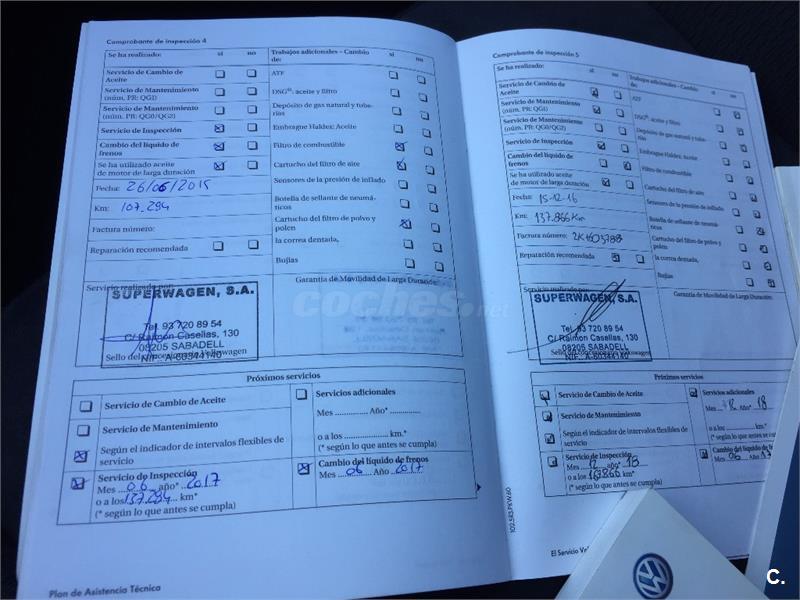 Comprobante de inspección 4
Se ha realizado: sí no
Trabajos adicionales – Cambio de: sí no
Servicio de Cambio de Aceite
Servicio de Mantenimiento (núm. PR: QG1)
Servicio de Mantenimiento (núm. PR: QG0/QG2)
Servicio de Inspección
Cambio del líquido de frenos
Se ha utilizado aceite de motor de larga duración
Fecha: 26/06/2015
Km: 107.294
Factura número:
Reparación recomendada
ATF
DSG®: aceite y filtro
Depósito de gas natural y tuberías
Embrague Haldex: Aceite
Filtro de combustible
Cartucho del filtro de aire
Sensores de la presión de inflado
Botella de sellante de neumáticos
Cartucho del filtro de polvo y polen
la correa dentada,
Bujías
Servicio realizado por:
Garantía de Movilidad de Larga Duración:
SUPERWAGEN, S.A.
Tel. 93 720 89 54
C/ Raimon Casellas, 130
08205 SABADELL
NIF. A-60344140
Sello del concesionario Volkswagen
coches.net
Próximos servicios
Servicio de Cambio de Aceite
Servicio de Mantenimiento
Según el indicador de intervalos flexibles de servicio
Servicio de Inspección
Mes 06 año* 2017
o a los 137.294 km*
(* según lo que antes se cumpla)
Servicios adicionales
Mes ............ Año* ............
o a los .................... km.*
(* según lo que antes se cumpla)
Cambio del líquido de frenos
Mes 06 Año 2017
Plan de Asistencia Técnica
Comprobante de inspección 5
Se ha realizado: sí no
Trabajos adicionales – Cambio de: sí no
Servicio de Cambio de Aceite
Servicio de Mantenimiento (núm. PR: QG1)
Servicio de Mantenimiento (núm. PR: QG0/QG2)
Servicio de Inspección
Cambio del líquido de frenos
Se ha utilizado aceite de motor de larga duración
Fecha: 15-12-16
Km: 137.866 Km
Factura número:
Reparación recomendada
ATF
DSG®: aceite y filtro
Depósito de gas natural y tuberías
Embrague Haldex: Aceite
Filtro de combustible
Cartucho del filtro de aire
Sensores de la presión de inflado
Botella de sellante de neumáticos
Cartucho del filtro de polvo y polen
la correa dentada,
Bujías
Garantía de Movilidad de Larga Duración:
SUPERWAGEN, S.A.
Tel. 93 720 89 54
C/ Raimon Casellas, 130
08205 SABADELL
NIF. A-60344140
Sello del concesionario Volkswagen
Próximos servicios
Servicio de Cambio de Aceite
Servicio de Mantenimiento
Según el indicador de intervalos flexibles de servicio
Servicio de Inspección
Mes 12 año* 18
o a los 167866 km*
(* según lo que antes se cumpla)
Servicios adicionales
Mes 12 Año* 18
o a los .................... km.*
(* según lo que antes se cumpla)
Cambio del líquido de frenos
Mes 06 Año 17
102.5R3.PKW.60
El Servicio
C.